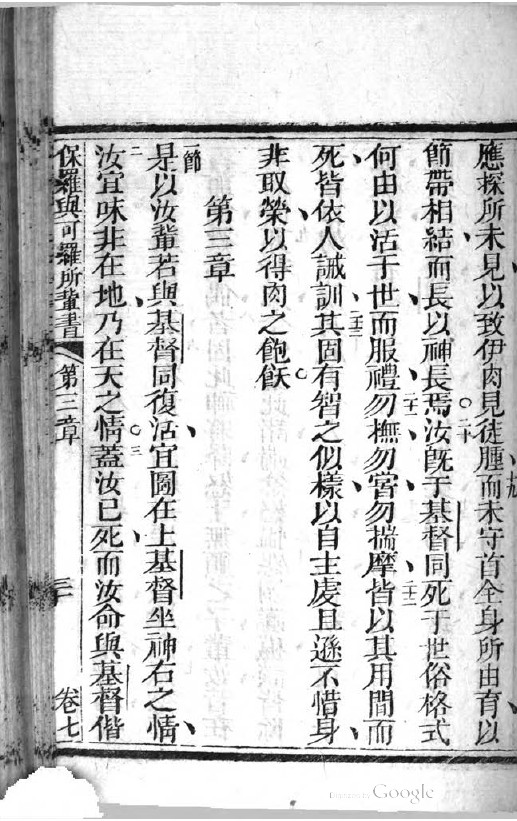 應探所未見以致伊肉見徒腫而未守首全身所由育以
節帶相結而長以神長焉二十汝旣于基督同死于世俗格式
何由以活于世而服禮二十一勿橅勿嘗勿揣摩二十二皆以其用間而
死皆依人誡訓二十三其固有智之似樣以自主虔且遜不惜身
非取榮以得肉之飽飫
第三章
一節是以汝輩若與基督同復活宜圖在上基督坐神右之情
二汝宜味非在地乃在天之情三蓋汝已死而汝命與基督偕
保羅與可羅所輩書 第三章 卷七
Digitized by Google